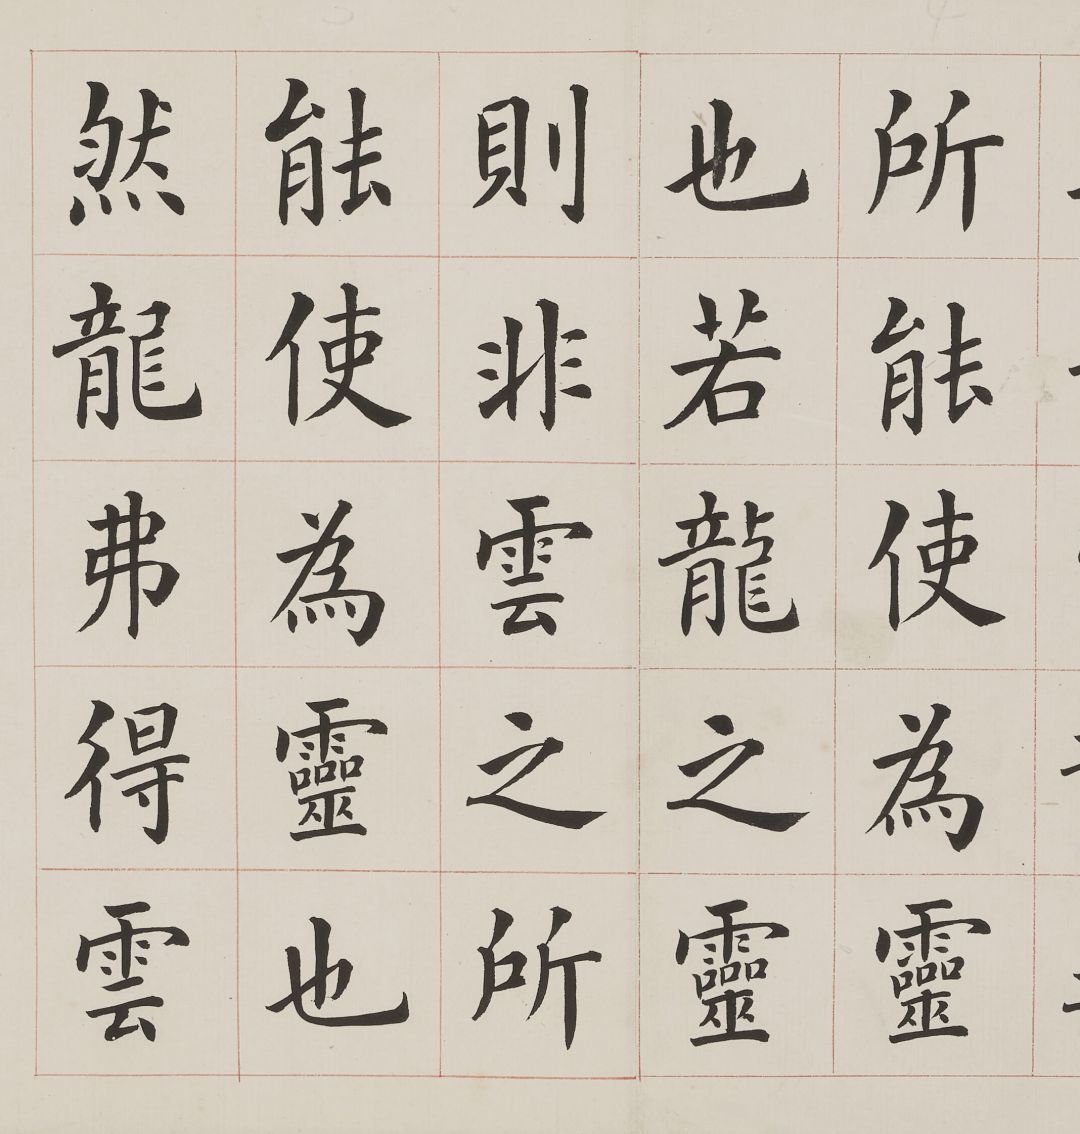 所能使為靈
也若龍之靈
則非雲之所
能使為靈也
然龍弗得雲